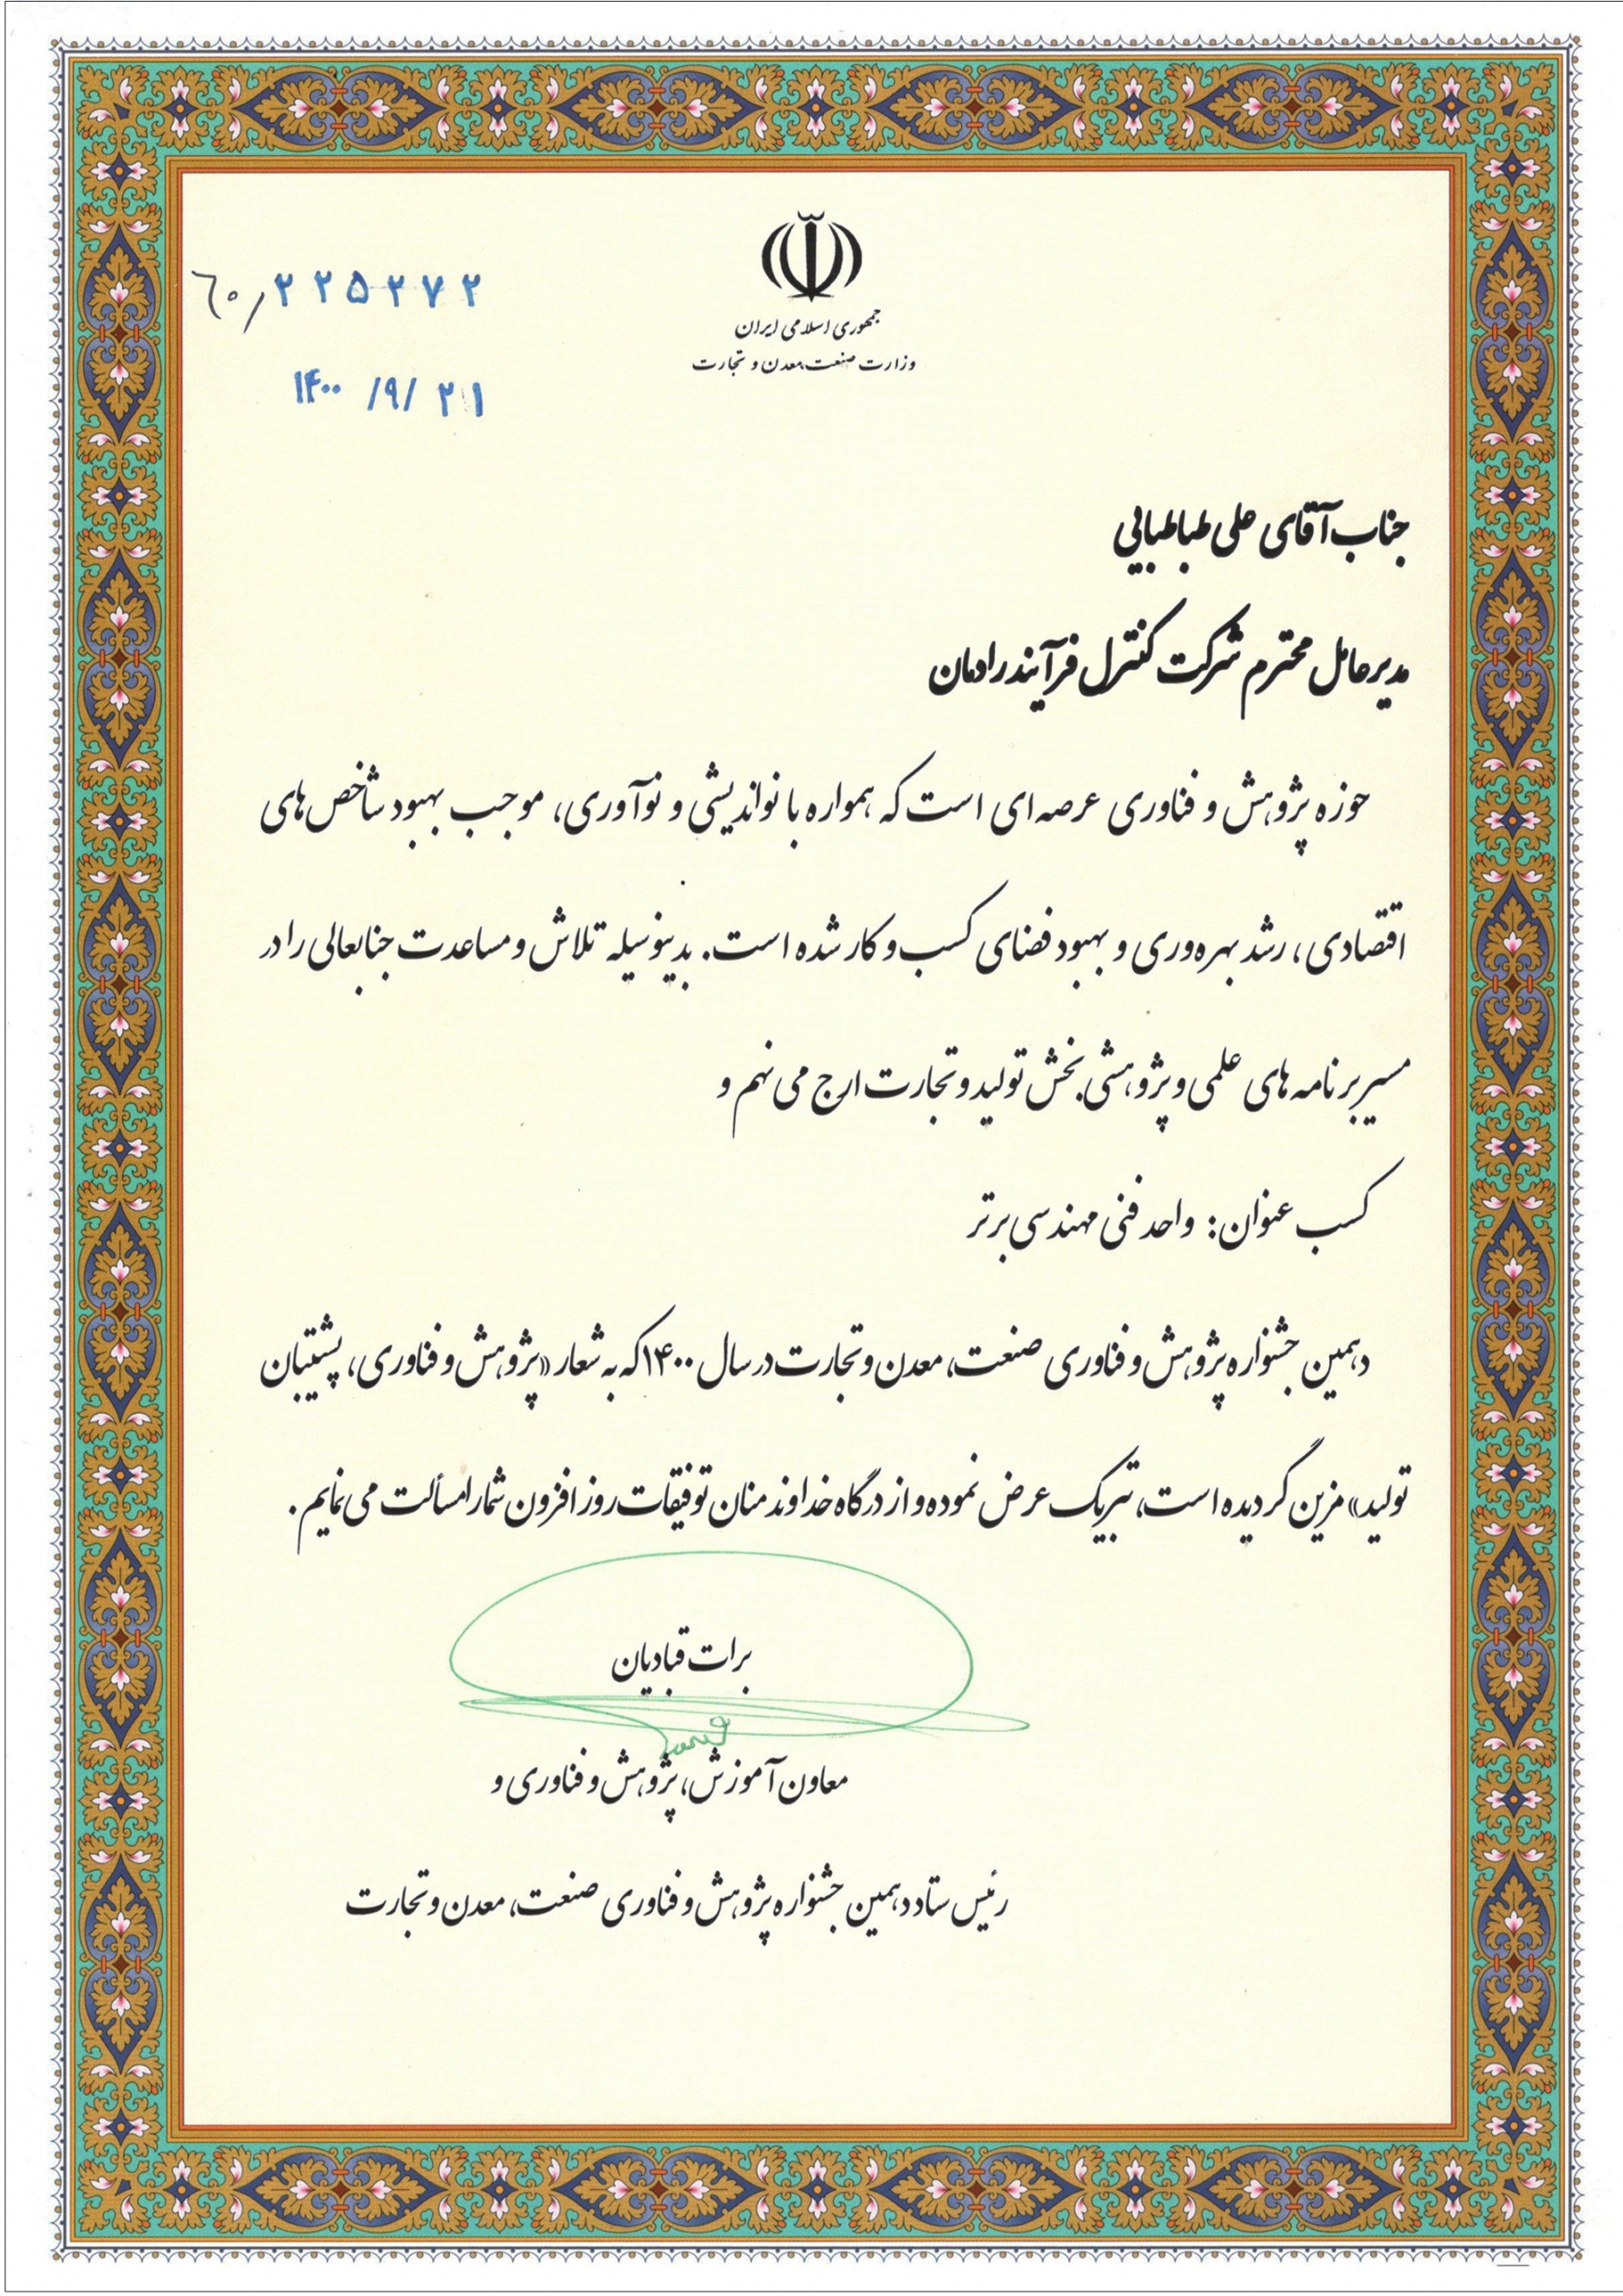 جمهوری اسلامی ایران
وزارت صنعت، معدن و تجارت
۶۰/۲۲۵۲۷۲
۱۴۰۰/۹/۲۱
جناب آقای علی طباطبایی
مدیرعامل محترم شرکت کنترل فرآیند رادمان
حوزه پژوهش و فناوری عرصه ای است که همواره با نواندیشی و نوآوری، موجب بهبود شاخص های
اقتصادی، رشد بهره وری و بهبود فضای کسب و کار شده است. بدینوسیله تلاش و مساعدت جنابعالی را در
مسیر برنامه های علمی و پژوهشی بخش تولید و تجارت ارج می نهم و
کسب عنوان: واحد فنی مهندسی برتر
دهمین جشنواره پژوهش و فناوری صنعت، معدن و تجارت در سال ۱۴۰۰ که به شعار «پژوهش و فناوری، پشتیبان
تولید» مزین گردیده است، تبریک عرض نموده و از درگاه خداوند منان توفیقات روز افزون شما را مسألت می نمایم.
برات قبادیان
معاون آموزش، پژوهش و فناوری و
رئیس ستاد دهمین جشنواره پژوهش و فناوری صنعت، معدن و تجارت